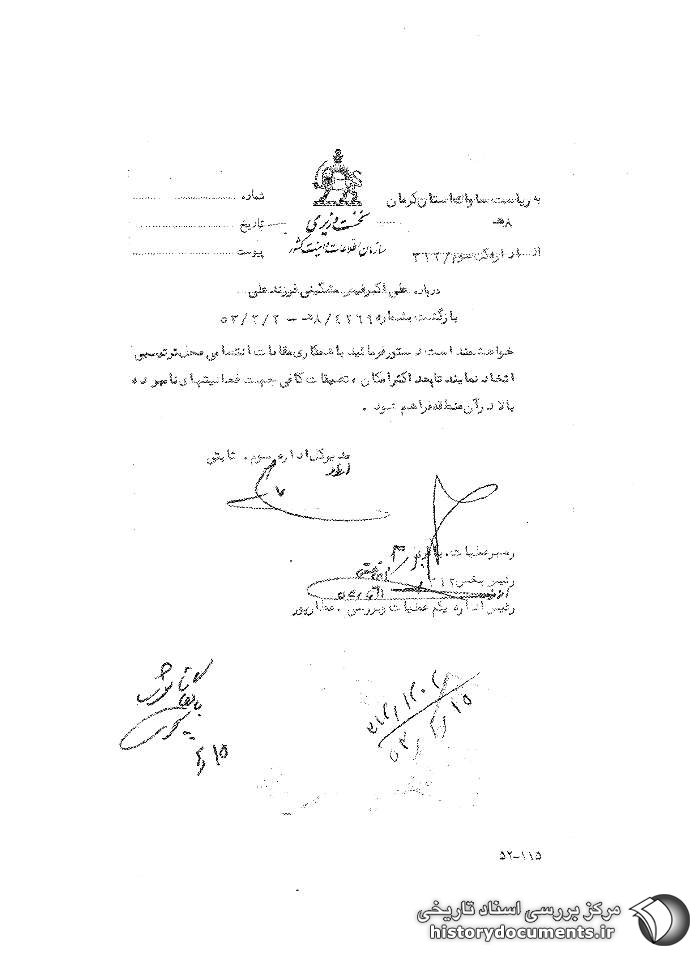 به ریاست ساواک استان کرمان
شماره
۸هـ
نخست وزیری
تاریخ
از اداره کل سوم/۳۱۲
سازمان اطلاعات و امنیت کشور
پیوست
درباره علی اکبر فیض مشگینی فرزند علی
بازگشت بشماره ۸/۴۲۶۹هـ - ۵۳/۲/۲
خواهشمند است دستور فرمائید با همکاری مقامات انتظامی محل ترتیبی
اتخاذ نمایند تا بحد اکثر امکان، تضیقات کافی جهت فعالیتهای نامبرده
بالا در آن منطقه فراهم شود.
مدیر کل اداره سوم. ثابتی
رهبر عملیات
رئیس بخش ۳۱۲
رئیس اداره یکم عملیات و بررسی. عطارپور
۳۱۲/۱۲۰۲
۵۳/۲/۱۵
۲/۱۵
۵۲-۱۱۵
مرکز بررسی اسناد تاریخی
historydocuments.ir